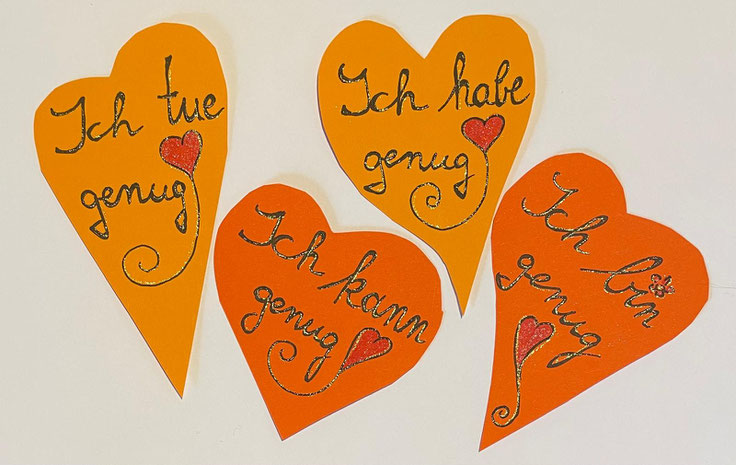 Ich tue
genug
Ich habe
genug
Ich kann
genug
Ich bin
genug